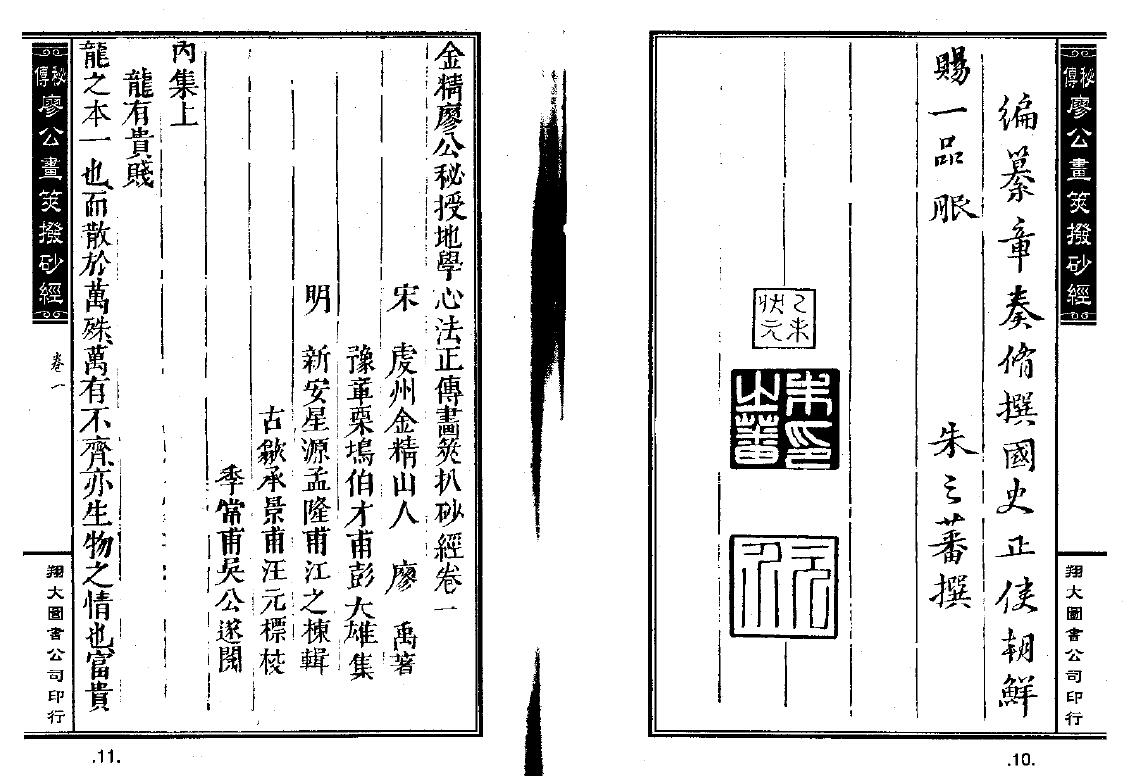 秘傳廖公畫筴撥砂經
翔大圖書公司印行
編纂章奏脩撰國史正使朝鮮
賜一品服
朱之蕃撰
乙未狀元
朱之蕃印
.10.
金精廖公秘授地學心法正傳畫筴扒砂經卷一
宋 虔州金精山人 廖 禹著
豫章栗塢伯才甫彭大雄集
明 新安星源孟隆甫江之棟輯
古歙承景甫汪元標校
季常甫吳公遂閱
內集上
龍有貴賤
龍之本一也而散於萬殊萬有不齊亦生物之情也富貴
秘傳廖公畫筴撥砂經
卷一
翔大圖書公司印行
.11.